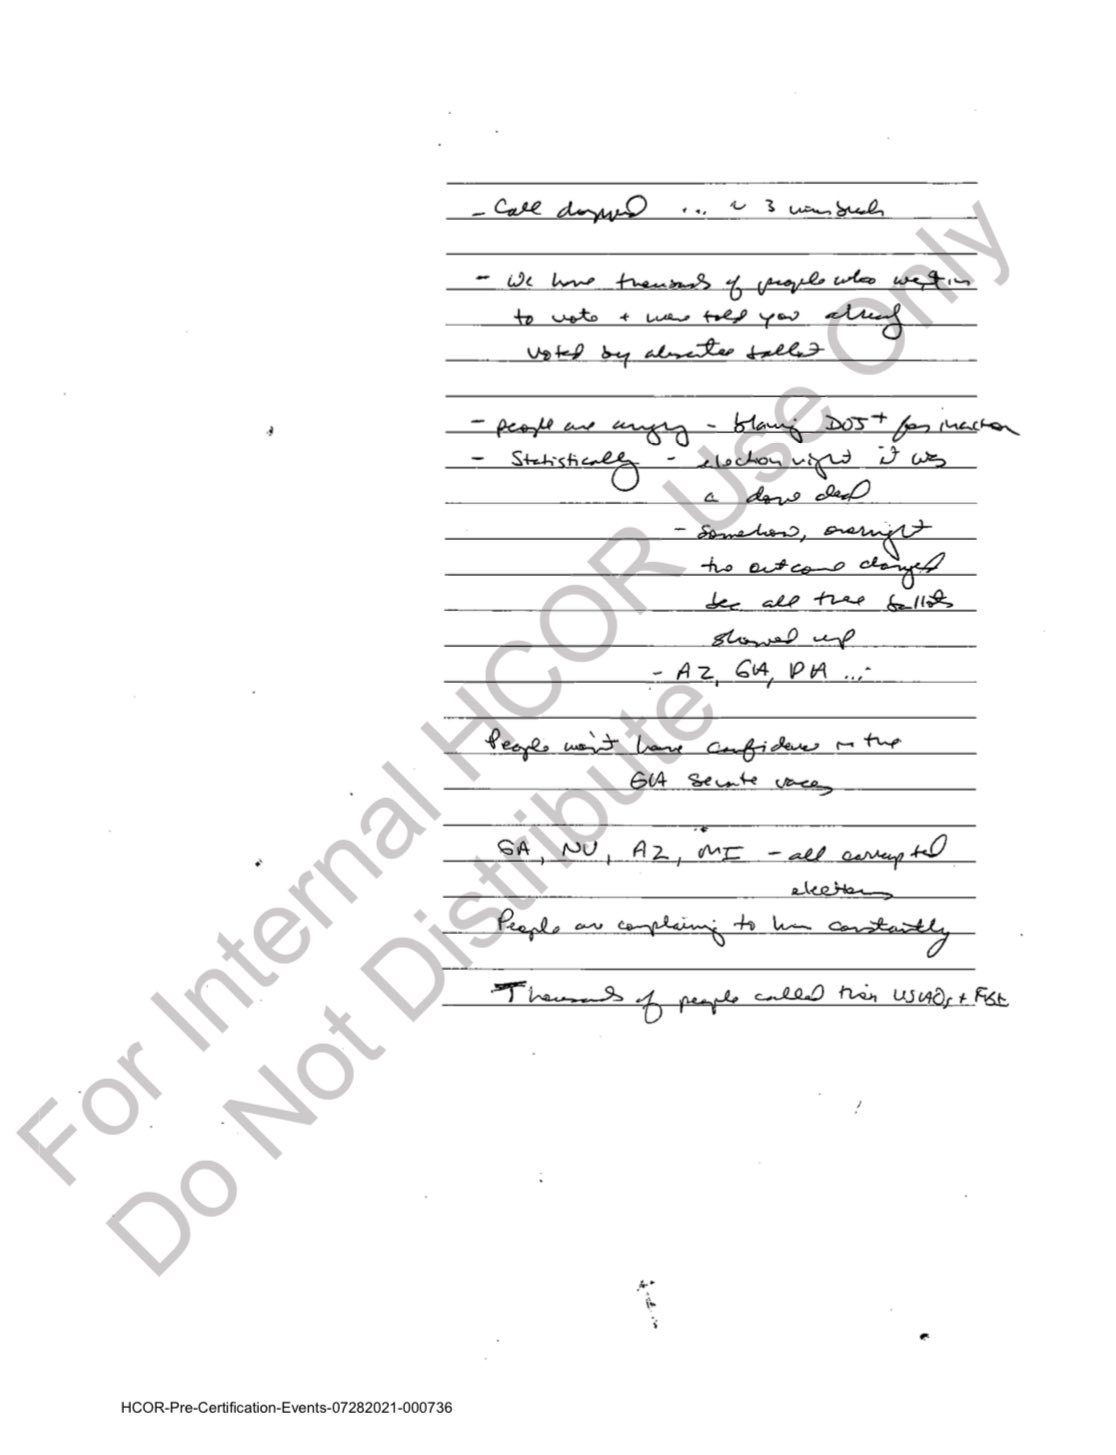 - Call dropped ... ~ 3 minutes
- We have thousands of people who went in
to vote + were told you already
voted by absentee ballot
- people are angry - blaming DOJ + for inaction
- Statistically - election night it was
a done deal
- Somehow, overnight
the outcome changed
bec all these ballots
showed up
- AZ, GA, PA ...
People won't have confidence in the
GA Senate races
GA, NV, AZ, MI - all corrupted
elections
People are complaining to him constantly
Thousands of people called their USAOs +
For Internal HCOR Use Only
Do Not Distribute
HCOR-Pre-Certification-Events-07282021-000736